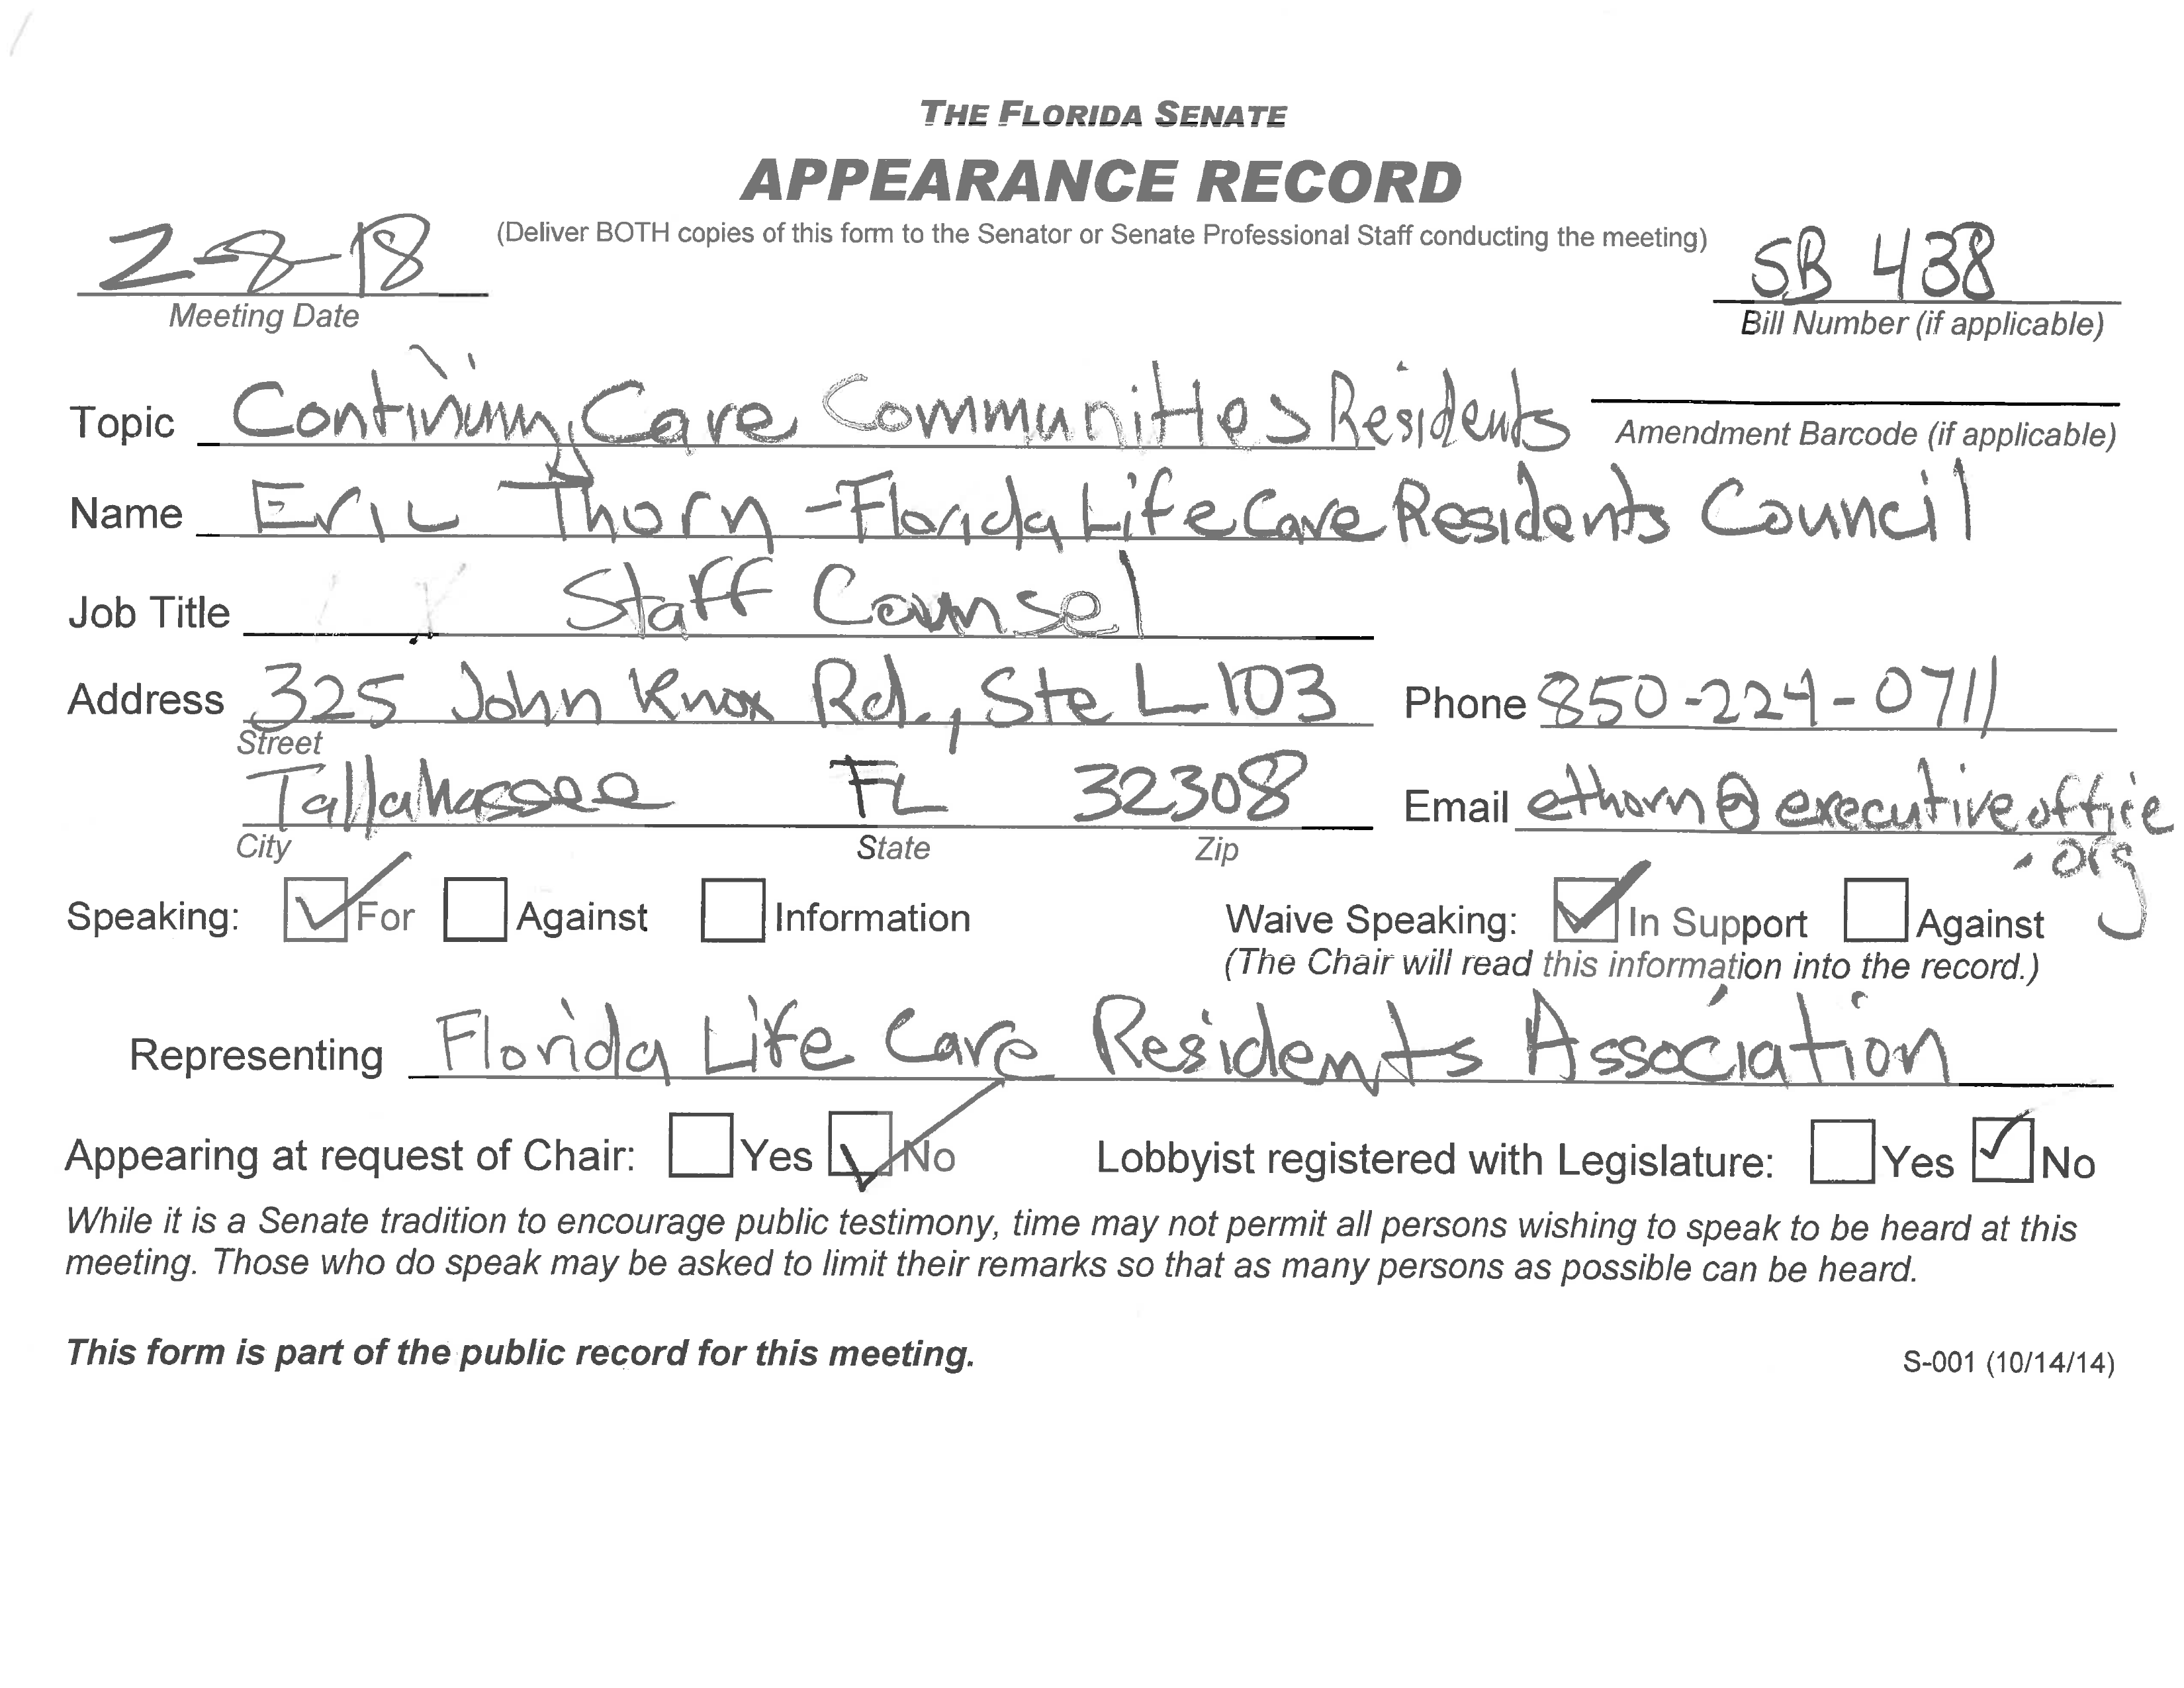 THE FLORIDA SENATE
APPEARANCE RECORD
(Deliver BOTH copies of this form to the Senator or Senate Professional Staff conducting the meeting)
2-8-18
SB 438
Meeting Date
Bill Number (if applicable)
Topic Care Communities Residents
Amendment Barcode (if applicable)
Name Eric Thorn - Florida Life Care Residents Council
Job Title Staff Counsel
Address 325 John Knox Rd., Ste L-103 Phone 850-224-0711
Street
Tallahassee FL 32308 Email ethorn@executiveoffice
.org
City State Zip
Speaking: For Against Information Waive Speaking: In Support Against
(The Chair will read this information into the record.)
Representing Florida Life Care Residents Association
Appearing at request of Chair: Yes No Lobbyist registered with Legislature: Yes No
While it is a Senate tradition to encourage public testimony, time may not permit all persons wishing to speak to be heard at this
meeting. Those who do speak may be asked to limit their remarks so that as many persons as possible can be heard.
This form is part of the public record for this meeting.
S-001 (10/14/14)